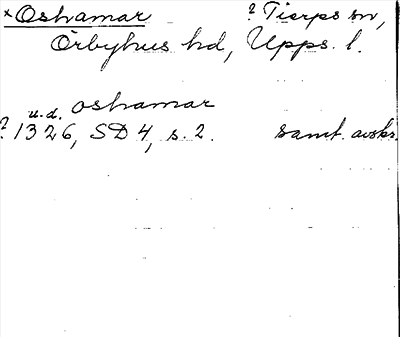 × Oshamar ? Tierps sn,
Örbyhus hd, Upps. l.
u.d. oshamar
? 1326, SD 4, s. 2. samt. avskr.